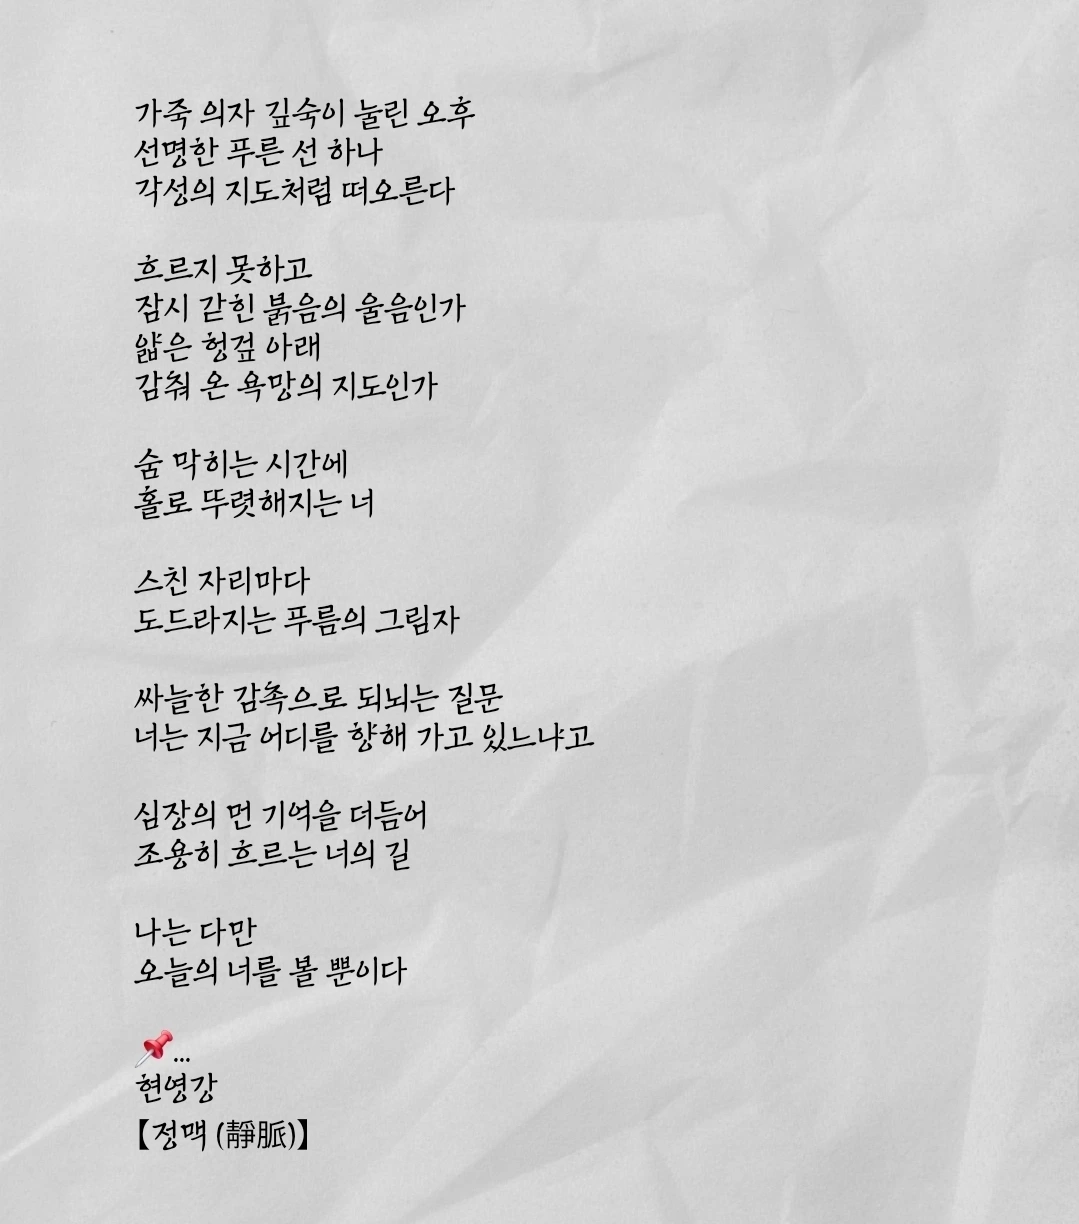 가죽 의자 깊숙이 눌린 오후
선명한 푸른 선 하나
각성의 지도처럼 떠오른다
흐르지 못하고
잠시 갇힌 붉음의 울음인가
얇은 헝겊 아래
감춰 온 욕망의 지도인가
숨 막히는 시간에
홀로 뚜렷해지는 너
스친 자리마다
도드라지는 푸름의 그림자
싸늘한 감촉으로 되뇌는 질문
너는 지금 어디를 향해 가고 있느냐고
심장의 먼 기억을 더듬어
조용히 흐르는 너의 길
나는 다만
오늘의 너를 볼 뿐이다
📌...
현영강
【정맥 (靜脈)】